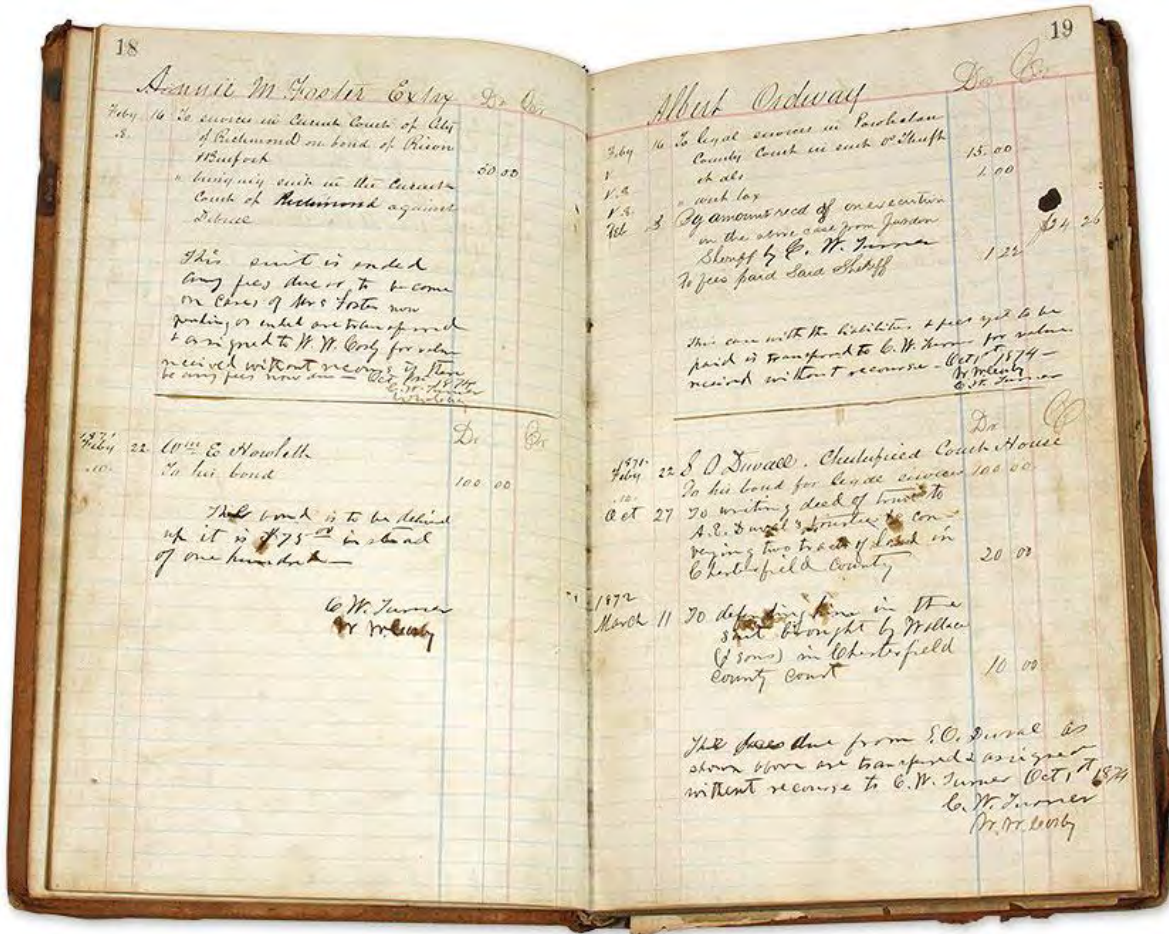 18
Annie M Foster Extrx Dr Cr.
Feby 16 To services in Circuit Court of City
of Richmond on bond of
50 00
" bringing suit in the Circuit
Court of Richmond against
This suit is ended
any fees due or to become
on cases of Mrs Foster now
pending or ended are transferred
& assigned to W. W. Cosby for value
received without recourse if there
be any fees now due — Oct 1st 1874
C. W. Turner
1871
Dr Cr.
Feby 22 Wm E Howlett
To his bond 100 00
The bond is to be
up it is $75 00 instead
of one hundred —
C. W. Turner
W W Cosby
19
Albert Ordway Dr Cr.
Feby 16 To legal services in Powhatan
County Court in suit vs
et als 15.00
" writ tax 1.00
Feb By amount recd of on execution
in the above case from
Sheriff by C. W. Turner $24 26
To fees paid Said Sheriff 1 22
This case with the liabilities & fees yet to be
paid is transferred to C. W. Turner for value
received without recourse — Oct 1st 1874 —
W W Cosby
C. W. Turner
Dr C
1871.
Feby 22 Duvall. Chesterfield Court House
To his bond for legal services 100 00
Oct 27 To writing deed of trust to
A. E. trustee con-
veying two tracts of land in
Chesterfield County 20 00
1872
March 11 To defending him in the
suit brought by Wallace
(& sons) in Chesterfield
County Court 10 00
The fees due from Duval as
shown above are transferred & assigned
without recourse to C. W. Turner Oct 1st 1874
C. W. Turner
W. W. Cosby